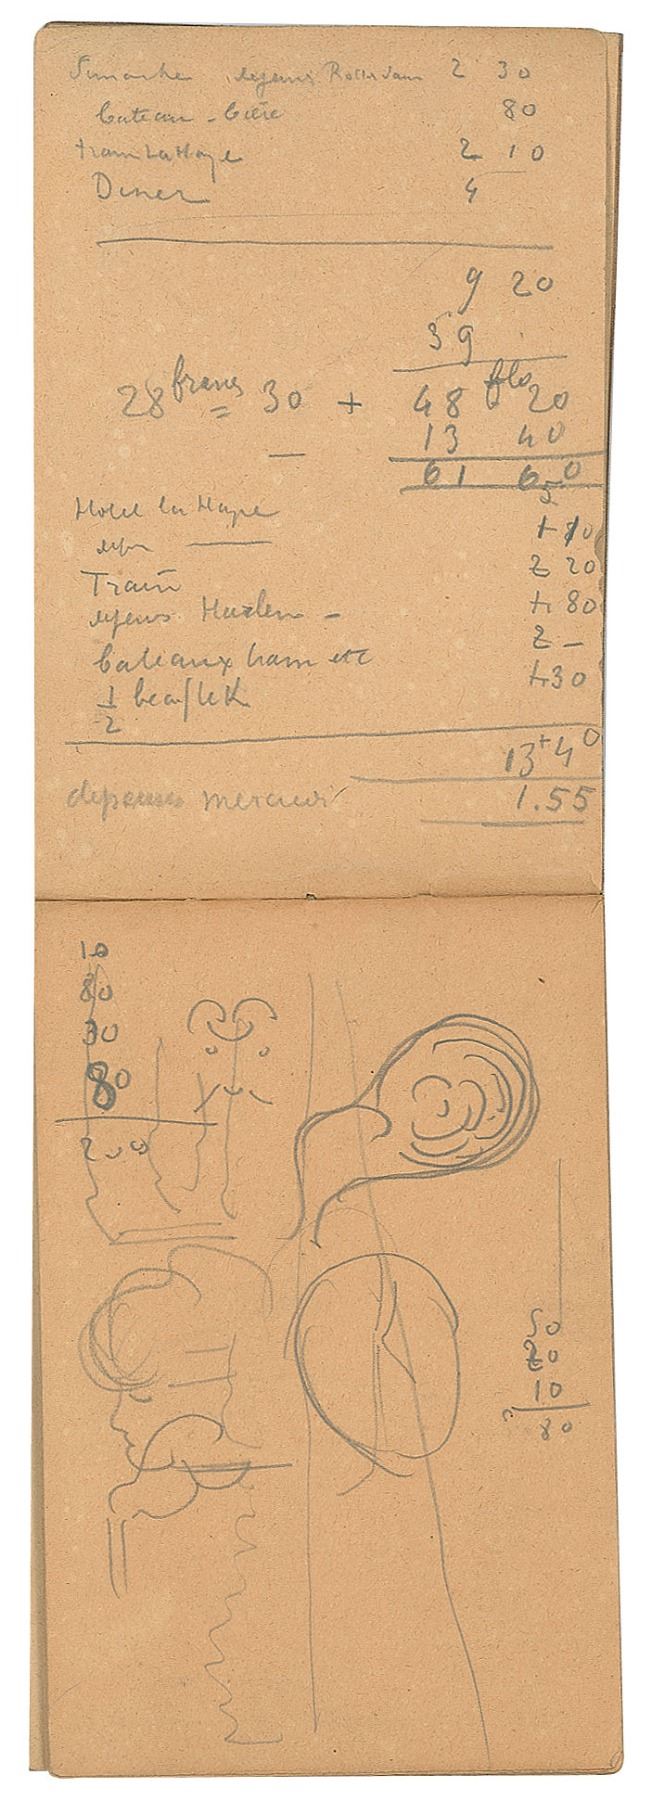 Dimanche dejeuné Rotterdam 2 30
bateau - bière 80
tram La Haye 2 10
Diner 4
9 20
39 .
28 francs = 30 + 48 flo 20
13 40
61 60
Hotel la Haye
Train 2 20
Harlem - 80
bateaux tram etc 2 -
1/2 beafstek 30
13 40
depenses mercredi 1.55
10
80
30
80
200
50
20
10
80